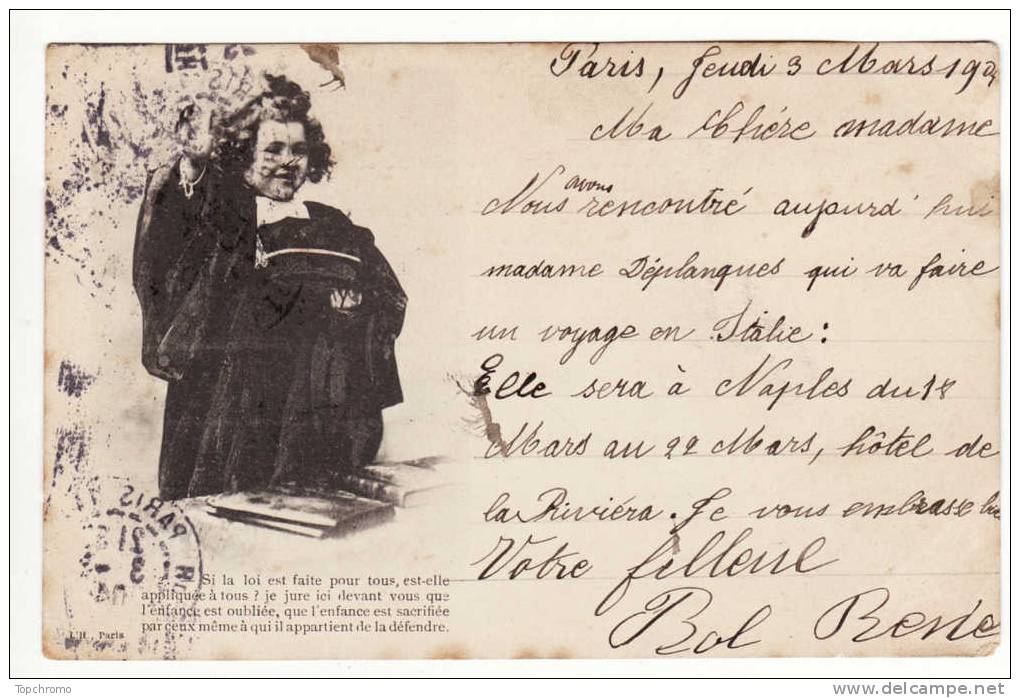 Paris, Jeudi 3 Mars 190
Ma Chére madame
Nous avons rencontré aujourd'hui
madame Déplanques qui va faire
un voyage en Italie :
Elle sera à Naples du 18
Mars au 22 Mars, hôtel de
la Riviéra. Je vous embrasse
Votre filleul
Bol René
Si la loi est faite pour tous, est-elle
appliquée à tous ? je jure ici devant vous que
l'enfance est oubliée, que l'enfance est sacrifiée
par ceux même à qui il appartient de la défendre.
L'H., Paris
PARIS
Topchromo
www.delcampe.net